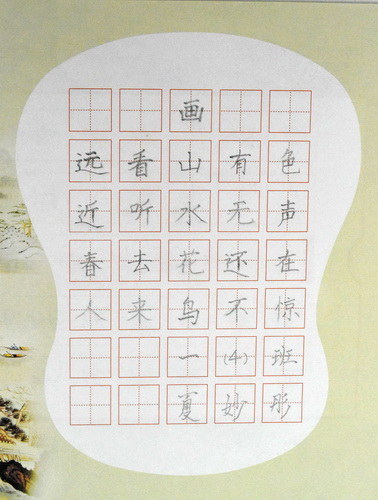 画
远看山有色
近听水无声
春去花还在
人来鸟不惊
一(4)班
夏妙彤